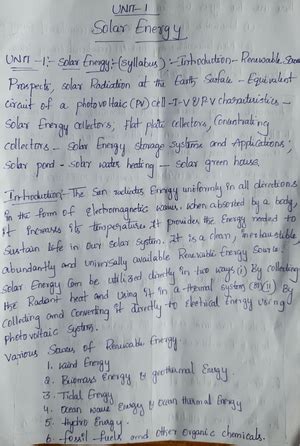 UNIT-1
Solar Energy
UNIT-1:- Solar Energy:-(syllabus):-Introduction- Renewable
Prospects, solar Radiation at the Earth Surface - Equivalent
circuit of a photovoltaic (PV) cell-I-V & P-V characteristics -
Solar Energy collectors, Flat plate collectors, Concentrating
collectors - Solar Energy storage systems and Applications,
Solar pond - solar water heating - solar green house.
Introduction:- The Sun radiates Energy uniformly in all directions
in the form of electromagnetic waves. when absorbed by a body,
it increases its temperature. It provides the Energy needed to
Sustain life in our Solar system. It is a clean, inexhaustible
abundantly and universally available Renewable Energy Source.
Solar Energy can be utilized directly in two ways (i) By collecting
the Radiant heat and Using it in a thermal system (or) (ii) By
Collecting and Converting it directly to Electrical Energy using
photovoltaic System.
Various Sources of Renewable Energy:
1. Wind Energy
2. Biomass Energy & geothermal Energy.
3. Tidal Energy
4. Ocean wave Energy & Ocean thermal Energy
5. Hydro Energy
6. fossil fuels and other Organic chemicals.